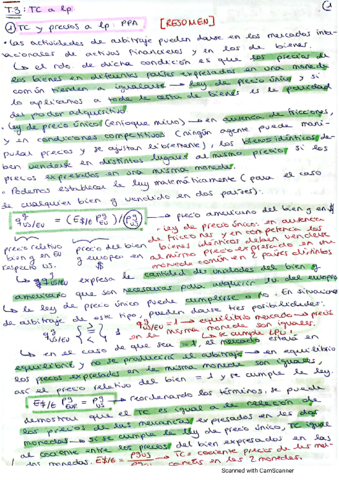 T.3: TC a lp.
①
1) TC y precios a lp: PPA [RESUMEN]
• Las actividades de arbitraje pueden darse en los mercados inter-
nacionales de activos financieros y en los de bienes.
↳ el rdo. de dicha condición es que los precios de
los bienes en diferentes países expresados en una moneda
común tienden a igualarse → ley de precio único y si
lo aplicamos a toda la cesta de bienes es la paridad
del poder adquisitivo.
• Ley de precio único (enfoque micro) → en ausencia de fricciones,
y en condiciones competitivas (ningún agente puede mani-
pular precios y se ajustan libremente), los bienes idénticos de-
ben venderse en distintos lugares al mismo precio si los
precios expresados en una misma moneda.
• Podemos establecer la ley matemáticamente (para el caso
de cualquier bien g vendido en dos países).
q^g US/EU = (E$/€ P^g EU)/(P^g US) → precio americano del bien g en $
precio relativo bien g en EU respecto US.
precio del bien g europeo en $
• Ley de precio único en ausencia
de fricciones y en competencia los
bienes idénticos deben venderse
al mismo precio expresado en una
moneda común en 2 países distintos
↳ q^g US/EU expresa la cantidad de unidades del bien g
americano que son necesarias para adquirir 1u del europeo
↳ la ley de precio único puede cumplirse o no. En situaciones
de arbitraje de este tipo, pueden darse tres posibilidades.
q^g US/EU { > = < } 1
q^g US/EU = 1 → equilibrio mercado → precios
en la misma moneda son iguales.
↳ se cumple LPU.
↳ en el caso de que sea = 1, el mercado estará en
equilibrio y se producirá el arbitraje → en equilibrio
los precios expresados en la misma moneda son iguales,
así el precio relativo del bien = 1 y se cumple la ley.
E$/€ P^g EUR = P^g US → reordenando los términos, se puede
demostrar que el TC es igual a la relación de
los precios de las mercancías expresados en las dos
monedas → si se cumple la ley de precio único, TC igual
al cociente entre los precios del bien expresados en las
monedas. E$/€ = P^g US → TC = cociente precios de las mer-
cancías en las 2 monedas.
Scanned with CamScanner